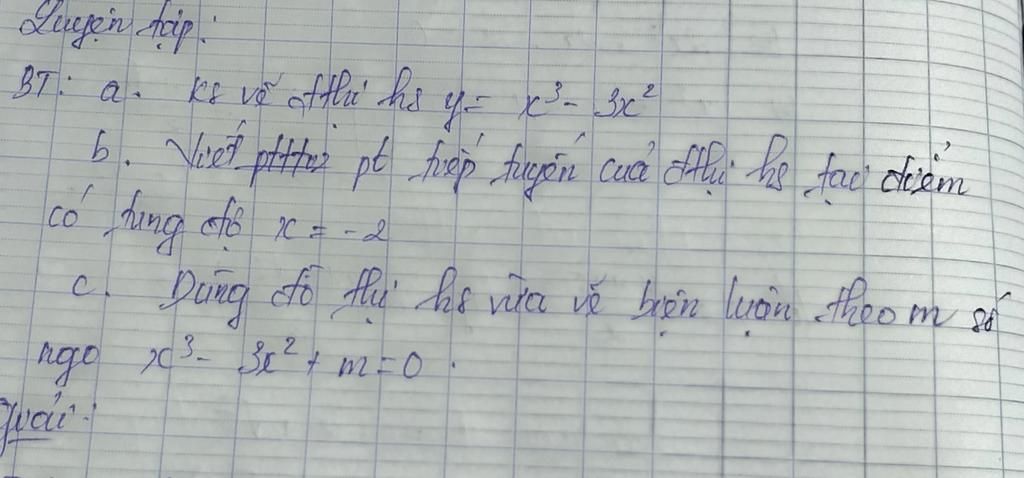 Luyện tập:
BT: a. KS vẽ đthị hs y = x³ - 3x²
b. Viết pt tiếp tuyến của đthị hs tại điểm
có tung độ x = -2
c. Dùng đồ thị hs vừa vẽ biện luận theo m số
ngo x³ - 3x² + m = 0.
Giải: